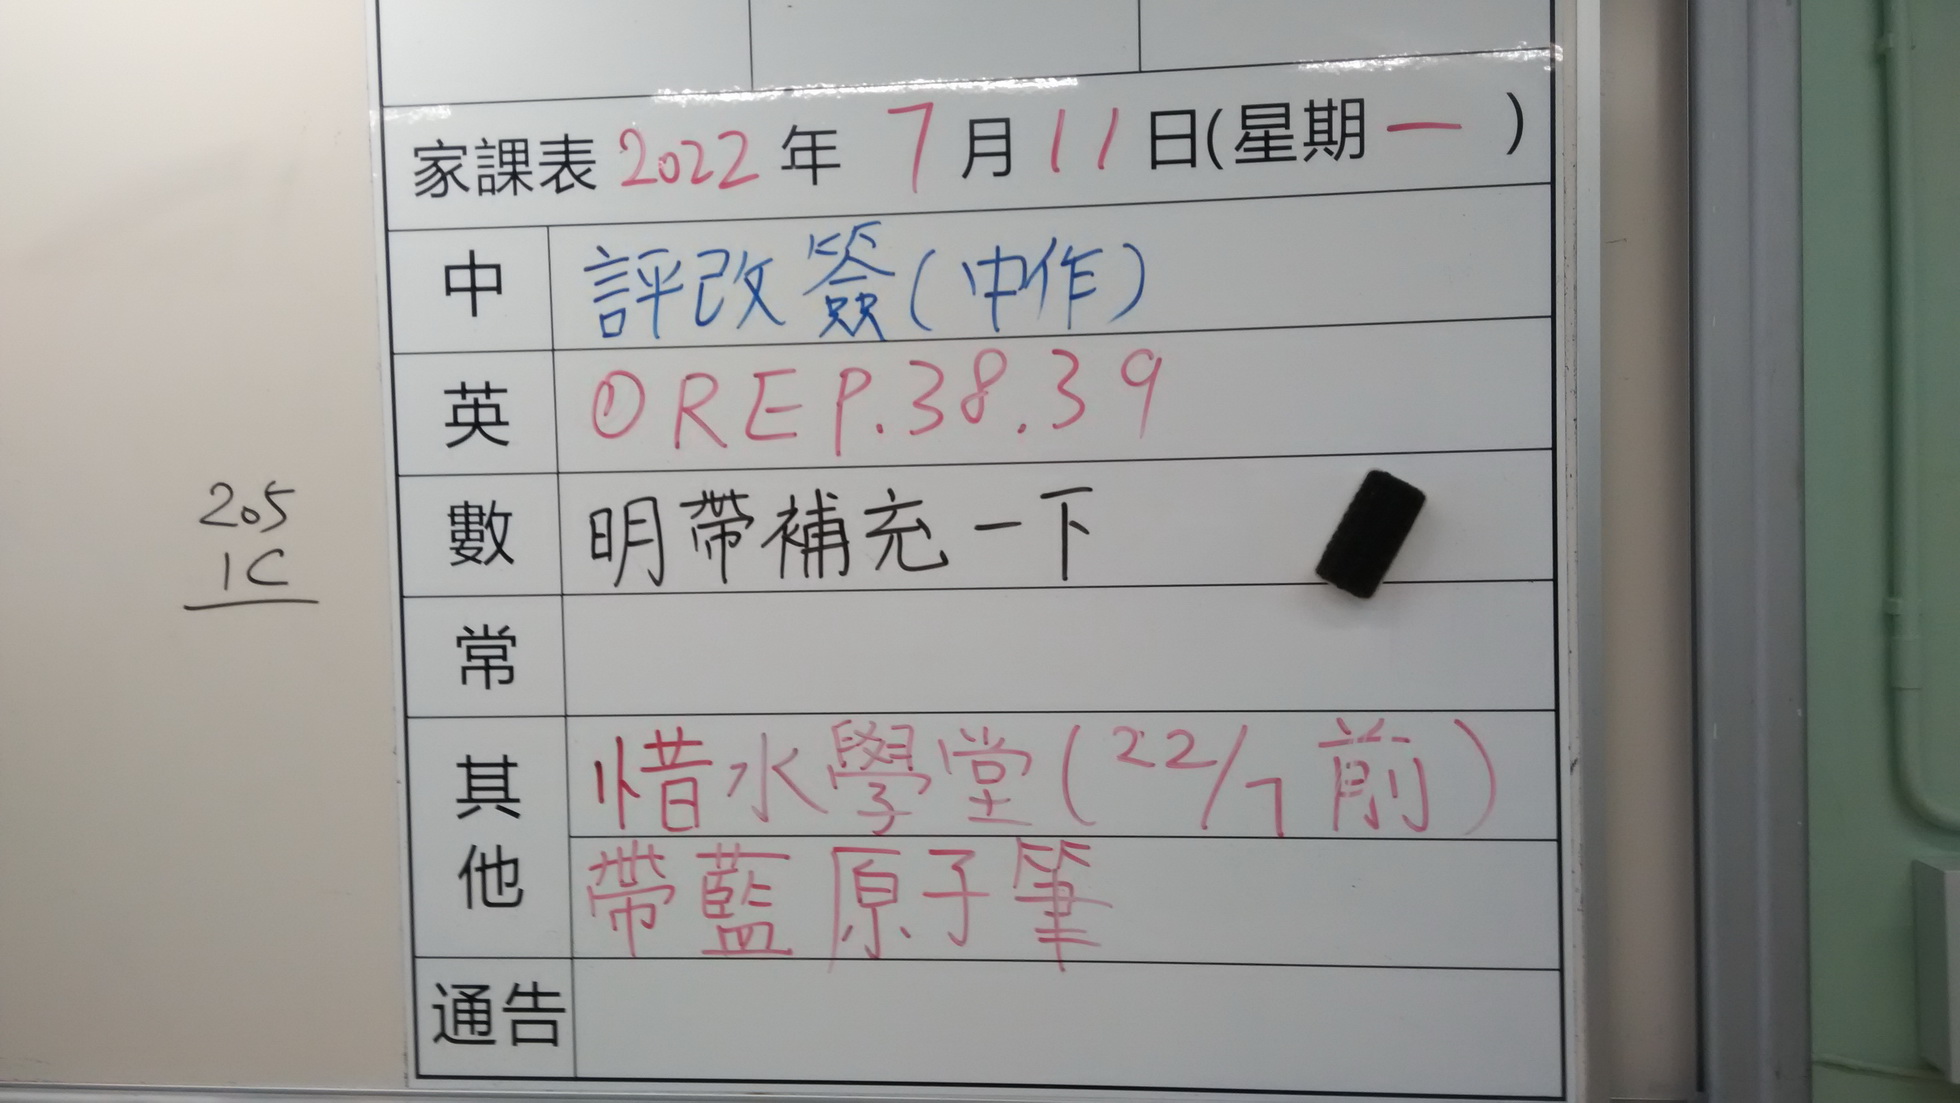 家課表 2022 年 7 月 11 日(星期一)
中 評改簽(中作)
英 ① R E P.38.39
數 明帶補充一下
常
其他 惜水學堂(22/7前)
帶藍原子筆
通告
205
1C